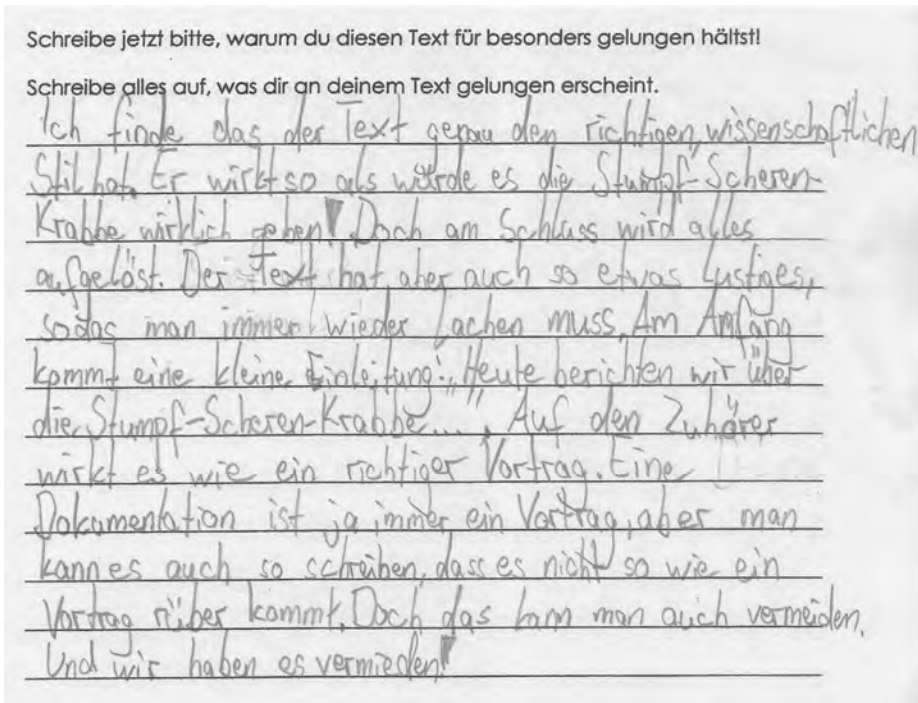 Schreibe jetzt bitte, warum du diesen Text für besonders gelungen hältst!
Schreibe alles auf, was dir an deinem Text gelungen erscheint.
Ich finde das der Text genau den richtigen, wissenschaftlichen
Stil hat. Er wirkt so als würde es die Stumpf-Scheren-
Krabbe wirklich geben! Doch am Schluss wird alles
aufgelöst. Der Text hat aber auch so etwas Lustiges,
sodas man immer wieder lachen muss. Am Anfang
kommt eine kleine Einleitung: „Heute berichten wir über
die Stumpf-Scheren-Krabbe....". Auf den Zuhörer
wirkt es wie ein richtiger Vortrag. Eine
Dokumentation ist ja immer ein Vortrag, aber man
kann es auch so schreiben, dass es nicht so wie ein
Vortrag rüber kommt. Doch das kann man auch vermeiden.
Und wir haben es vermieden!